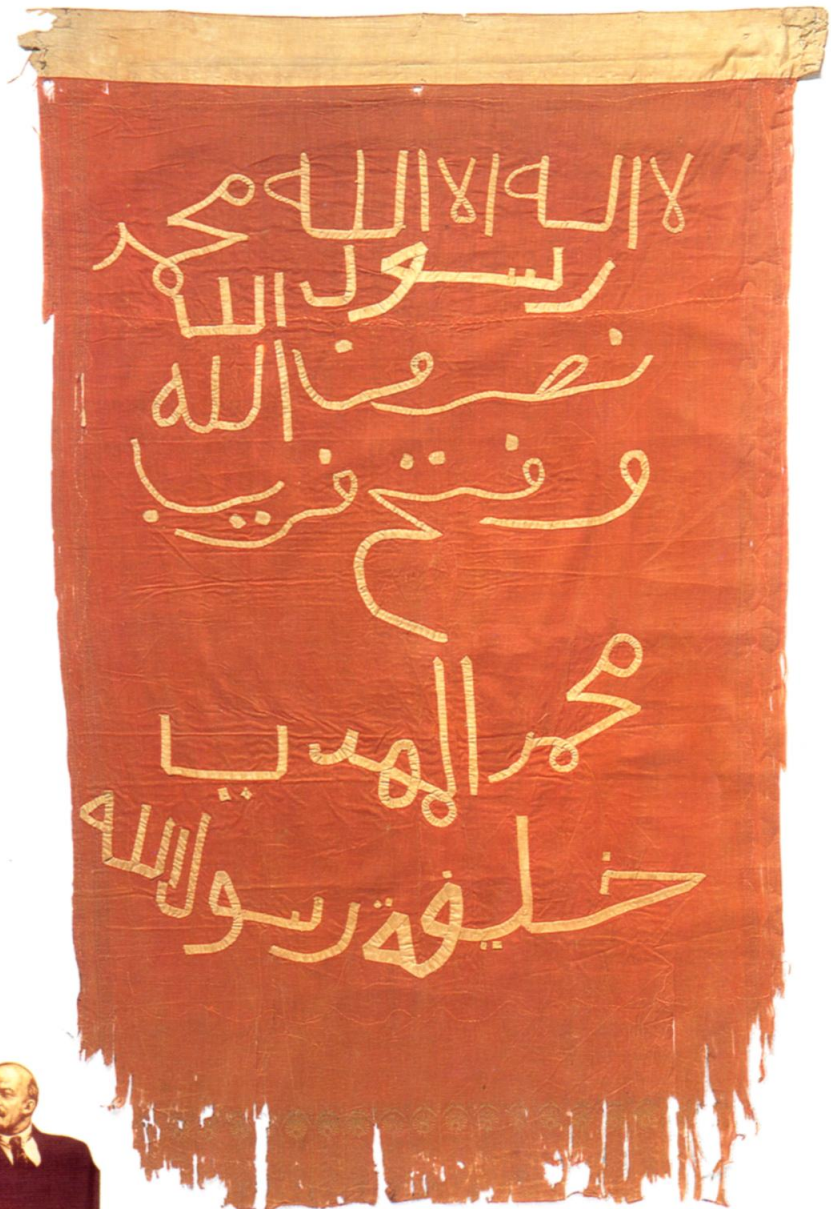 لا اله الا الله محمد
رسول الله
نصر منا الله
وفتح قريب
محمد المهدي
خليفة رسول الله